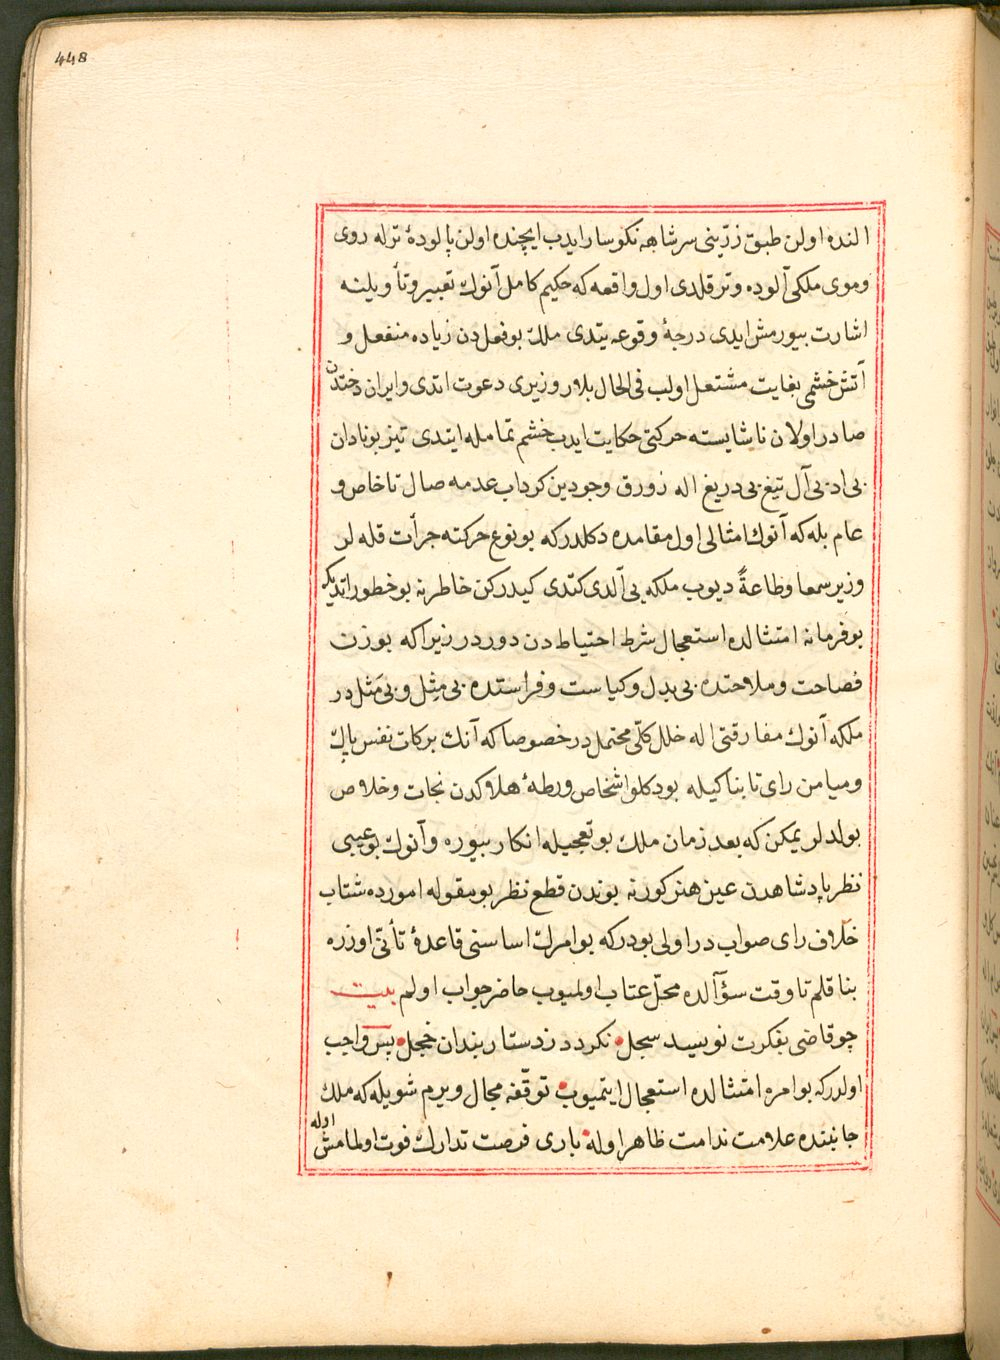 448
النده اولن طبق زرّینی سرشاهه نکوسار ایدب ایچنده اولن پالودۀ ترله روی
وموی ملکی آلوده وتر قلدی اول واقعه که حکیم کامل آنوك تعبیر وتأویلنه
اشارت بیورمش ایدی درجۀ وقوعه یتدی ملك بو فعل دن زیاده منفعل و
آتش خشمی بغایت مشتعل اولب فی الحال بلار وزیری دعوت اتدی وایران دختدن
صادر اولان ناشایسته حرکتی حکایت ایدب خشم تمامله ایتدی تیز بو نادان
بی ادبی آل تیغ بی دریغ اله زورق وجودین کرداب عدمه صال تا خاص و
عام بله که آنوك امثالی اول مقامده دکلدر که بو نوع حرکته جرأت قله لر
وزیر سمعا وطاعةً دیوب ملکه یی آلدی کتدی کیدرکن خاطرنه بو خطور اتدیکه
بو فرمانه امتثالده استعجال شرط احتیاط دن دوردر زیرا که بو زن
فصاحت وملاحتده بی بدل وکیاست وفراستده بی مِثل وبی مَثل در
ملکه آنوك مفارقتی اله خلل کلّی محتمل در خصوصا که آنك برکات نفس پاك
ومیامن رای تابناکیله بو دکلو اشخاص ورطۀ هلاکدن نجات وخلاص
بولدلر یمکن که بعد زمان ملك بو تعجیله انکار بیوره وآنوك بو عیبی
نظر پادشاهدن عین هنر کورنه بوندن قطع نظر بو مقوله امورده شتاب
خلاف رای صواب در اولی بودر که بو امرك اساسنی قاعدۀ تأنّی اوزره
بنا قلم تا وقت سؤآلده محلّ عتاب اولمیوب حاضر جواب اولم بیت
چو قاضی بفکرت نویسد سجل نکردد زدستار بندان خجل پس واجب
اولدر که بو امره امتثالده استعجال ایتمیوب توقّفه مجال ویرم شویله که ملك
جانبنده علامت ندامت ظاهر اوله باری فرصت تدارك فوت اولمامش اوله